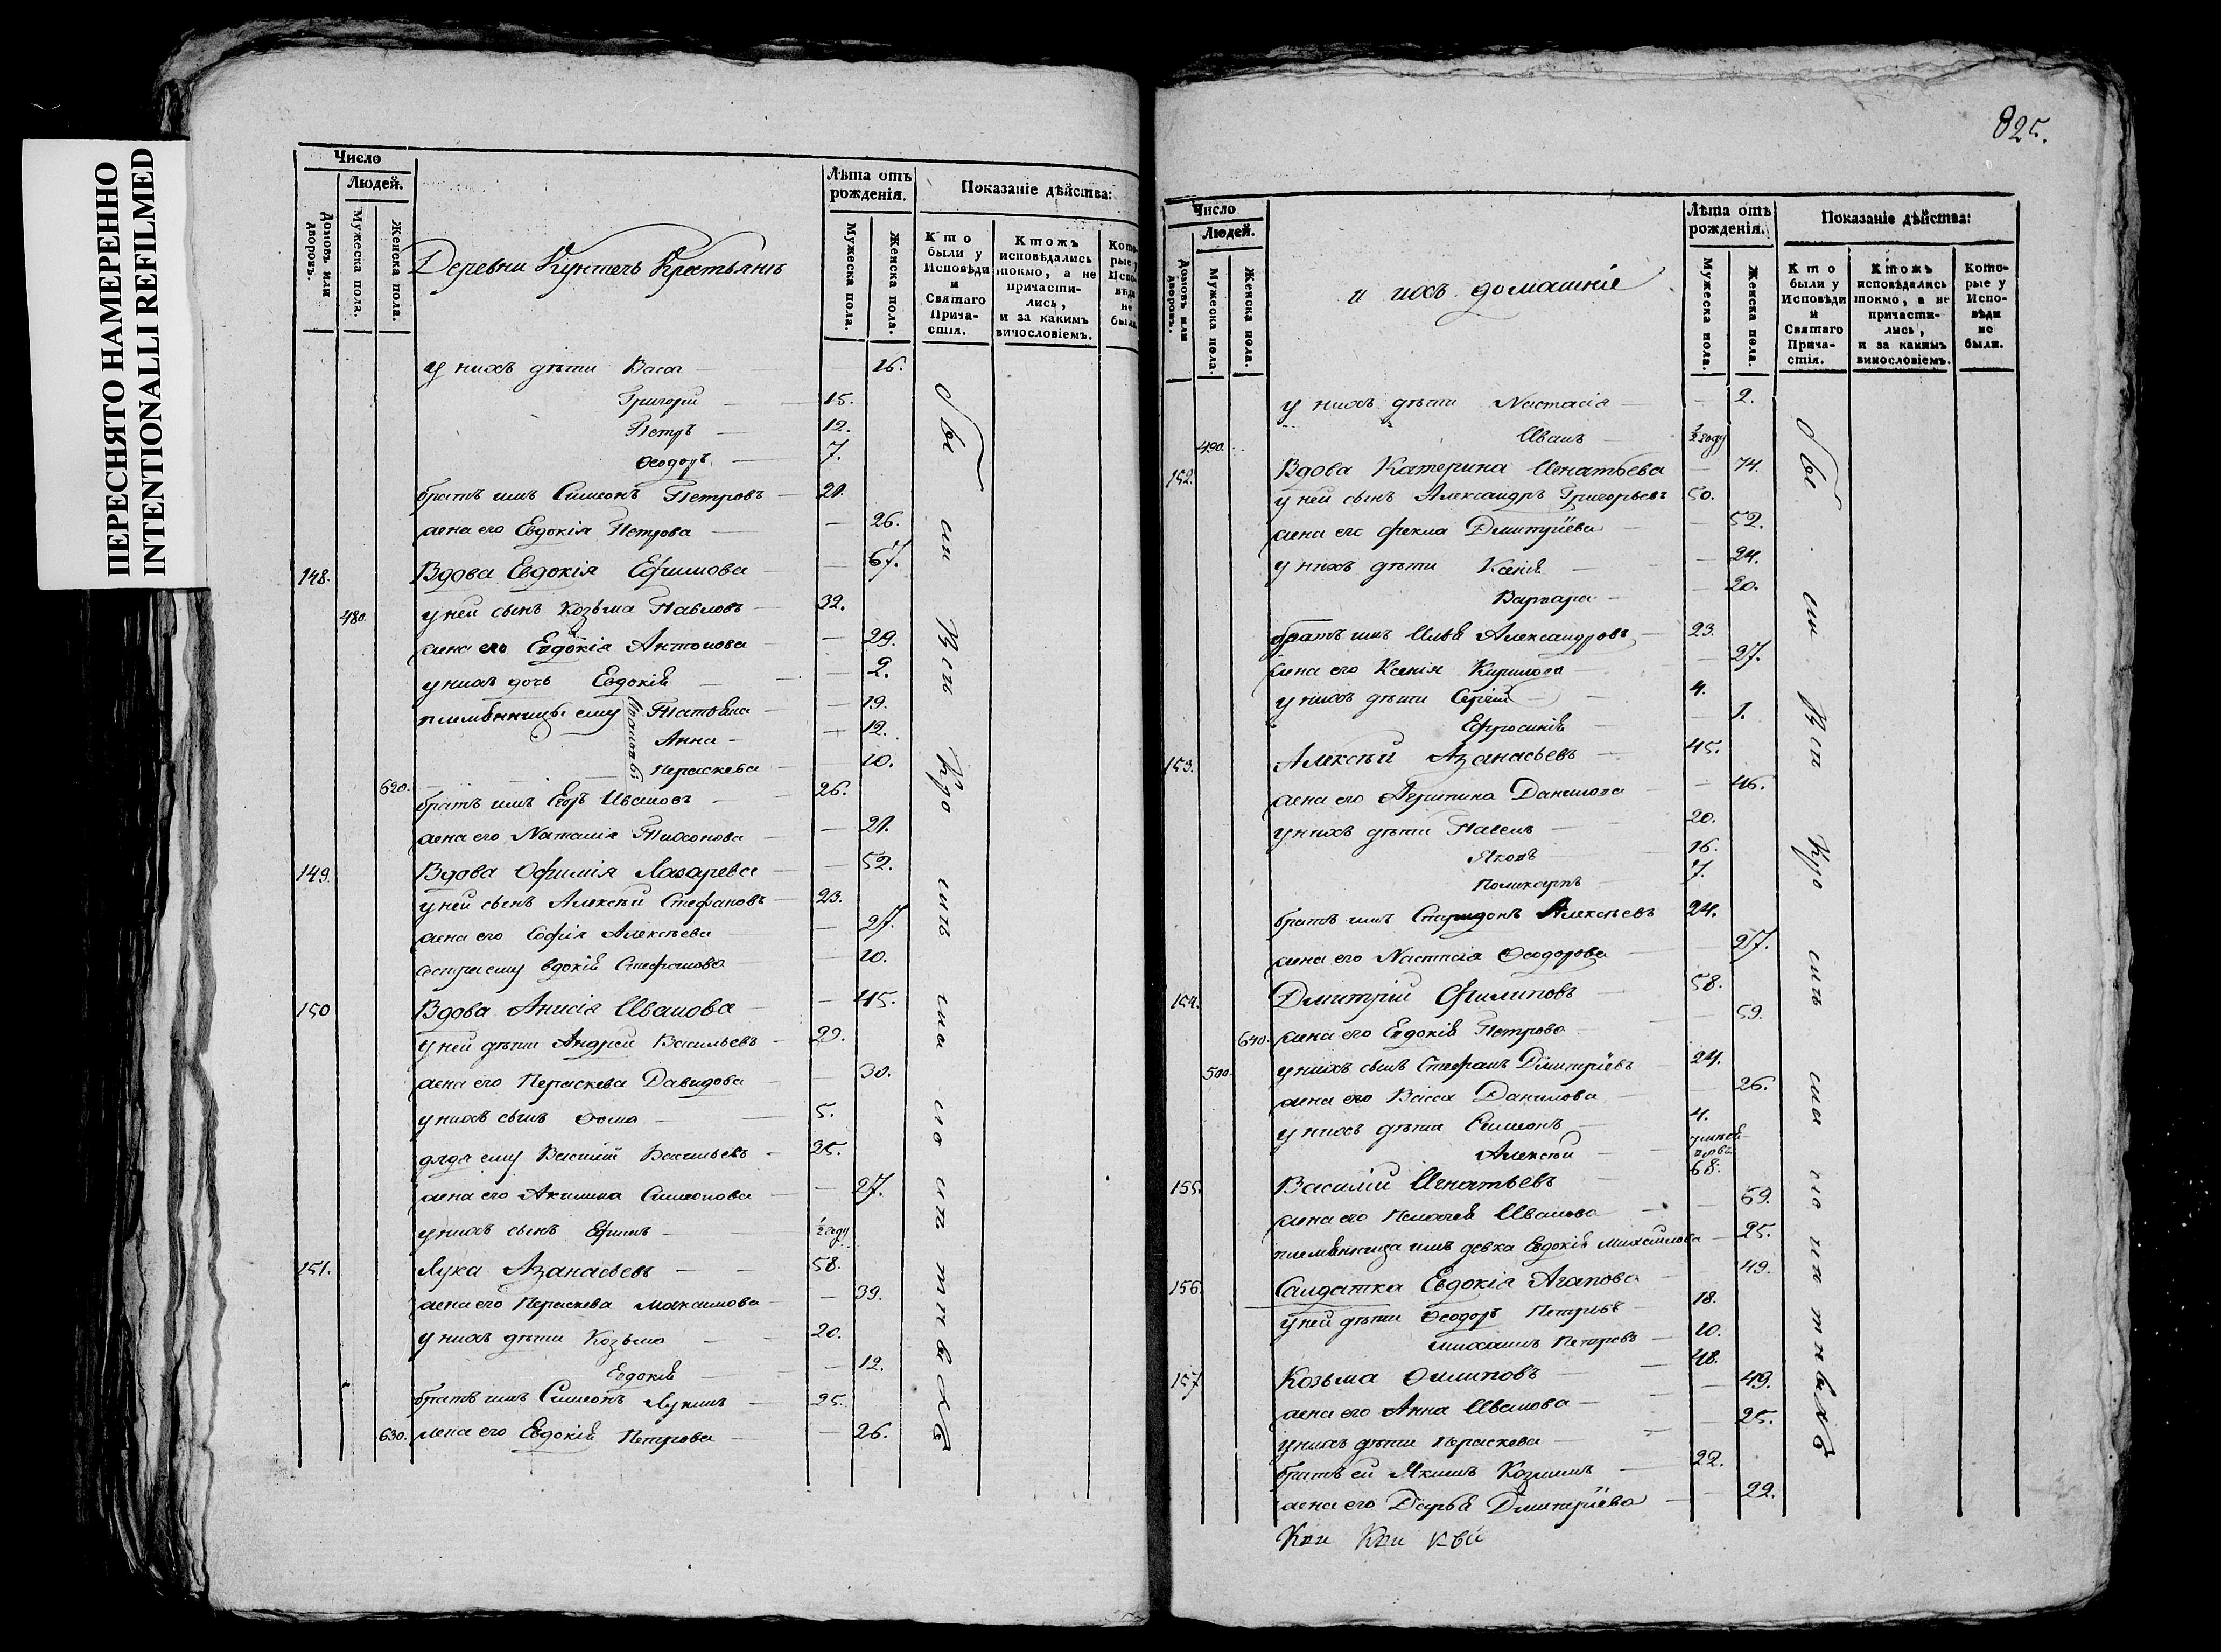 ПЕРЕСНЯТО НАМЕРЕННО
INTENTIONALLI REFILMED
Число
Людей.
Домовъ или дворовъ.
Мужеска пола.
Женска пола.
Деревни Крестьянъ
Лѣта отъ рожденія.
Мужеска пола.
Женска пола.
Показаніе дѣйства:
Кто были у Исповѣди и Святаго Причастія.
Ктожъ исповѣдались токмо, а не причастились, и за какимъ вичословіемъ.
Которые у Исповѣди не были.
у нихъ дѣти Васса — 16.
Григорій — 15.
Петръ — 12.
Ѳеодоръ — 7.
братъ имъ Симеонъ Петровъ — 21.
жена его Евдокія Петрова — 26.
148. Вдова Евдокія Ефимова — 67.
480. у ней сынъ Козьма Павловъ — 32.
жена его Евдокія Антонова — 29.
у нихъ дочь Евдокія — 2.
племѣнницы ему Ивановы Татьяна — 19.
Анна — 12.
620. Параскева — 10.
братъ имъ Егоръ Ивановъ — 26.
жена его Наталія Тихонова — 21.
149. Вдова Офимія Лазарева — 52.
у ней сынъ Алексѣй Стефановъ — 23.
жена его Софія Алексѣева — 27.
сестра ему вдокія Стефанова — 20.
150 Вдова Анисія Иванова — 45.
у ней дѣти Андрей Васильевъ — 29.
жена его Параскева Давидова — 30.
у нихъ сынъ Ѳома — 5.
дядя ему Василій Васильевъ — 25.
жена его Акилина Симеонова — 27.
у нихъ сынъ Ефимъ — ½ году
151. Лука Аѳанасьевъ — 58.
жена его Параскева Максимова — 39.
у нихъ дѣти Козьма — 20.
Евдокія — 12.
братъ имъ Симеонъ Лукинъ — 25.
630. жена его Евдокія Петрова — 26.
825.
Число
Людей.
Домовъ или дворовъ.
Мужеска пола.
Женска пола.
и ихъ домашніе
Лѣта отъ рожденія.
Мужеска пола.
Женска пола.
Показаніе дѣйства:
Кто были у Исповѣди и Святаго Причастія.
Ктожъ исповѣдались токмо, а не причастились, и за какимъ винословіемъ.
Которые у Исповѣди не были.
у нихъ дѣти Настасія — 2.
490. Иванъ — ½ году
152. Вдова Катерина Игнатьева — 74.
у ней сынъ Александръ Григорьевъ 50.
жена его Фекла Дмитріева — 52.
у нихъ дѣти Ксенія — 24.
Варвара — 20.
братъ имъ Илья Александровъ — 23.
жена его Ксенія Кирилова — 27.
у нихъ дѣти Сергій — 4.
Ефросинія — 1.
153. Алексѣй Аѳанасьевъ — 45.
жена его Агрипина Данилова — 46.
у нихъ дѣти Павелъ — 20.
Яковъ — 16.
Поликарпъ — 7.
братъ имъ Спиридонъ Алексѣевъ 24.
жена его Настасія Ѳеодорова — 27.
154. Дмитрій Филиповъ — 58.
640. жена его Евдокія Петрова — 59.
500. у нихъ сынъ Стефанъ Дмитріевъ — 24.
жена его Васса Данилова — 26.
у нихъ дѣти Симеонъ — 4.
Алексѣй
155. Василій Игнатьевъ — 68.
жена его Пелагея Иванова — 69.
племѣнница имъ девка Евдокія Михаилова — 25.
156. Салдатка Евдокія Агапова — 49.
у ней дѣти Ѳеодоръ Петровъ 18.
Михаилъ Петровъ — 10.
157 Козьма Филиповъ — 48.
жена его Анна Иванова — 49.
у нихъ дѣти Параскева — 25.
братъ ей Якимъ Козминъ — 22.
жена его Дарья Дмитріева — 22.